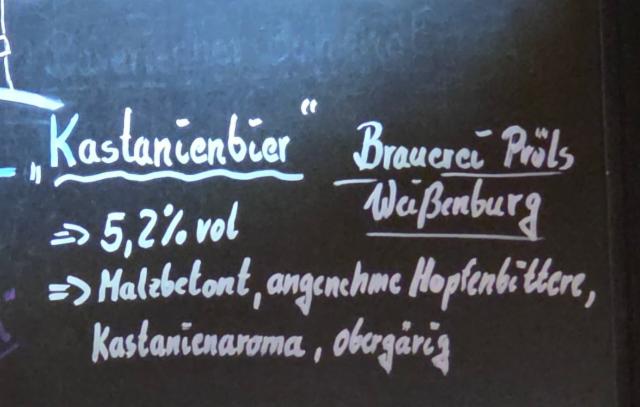 „Kastanienbier“
Brauerei Pröls
Weißenburg
=> 5,2% vol
=> Malzbetont, angenehme Hopfenbittere,
Kastanienaroma, obergärig